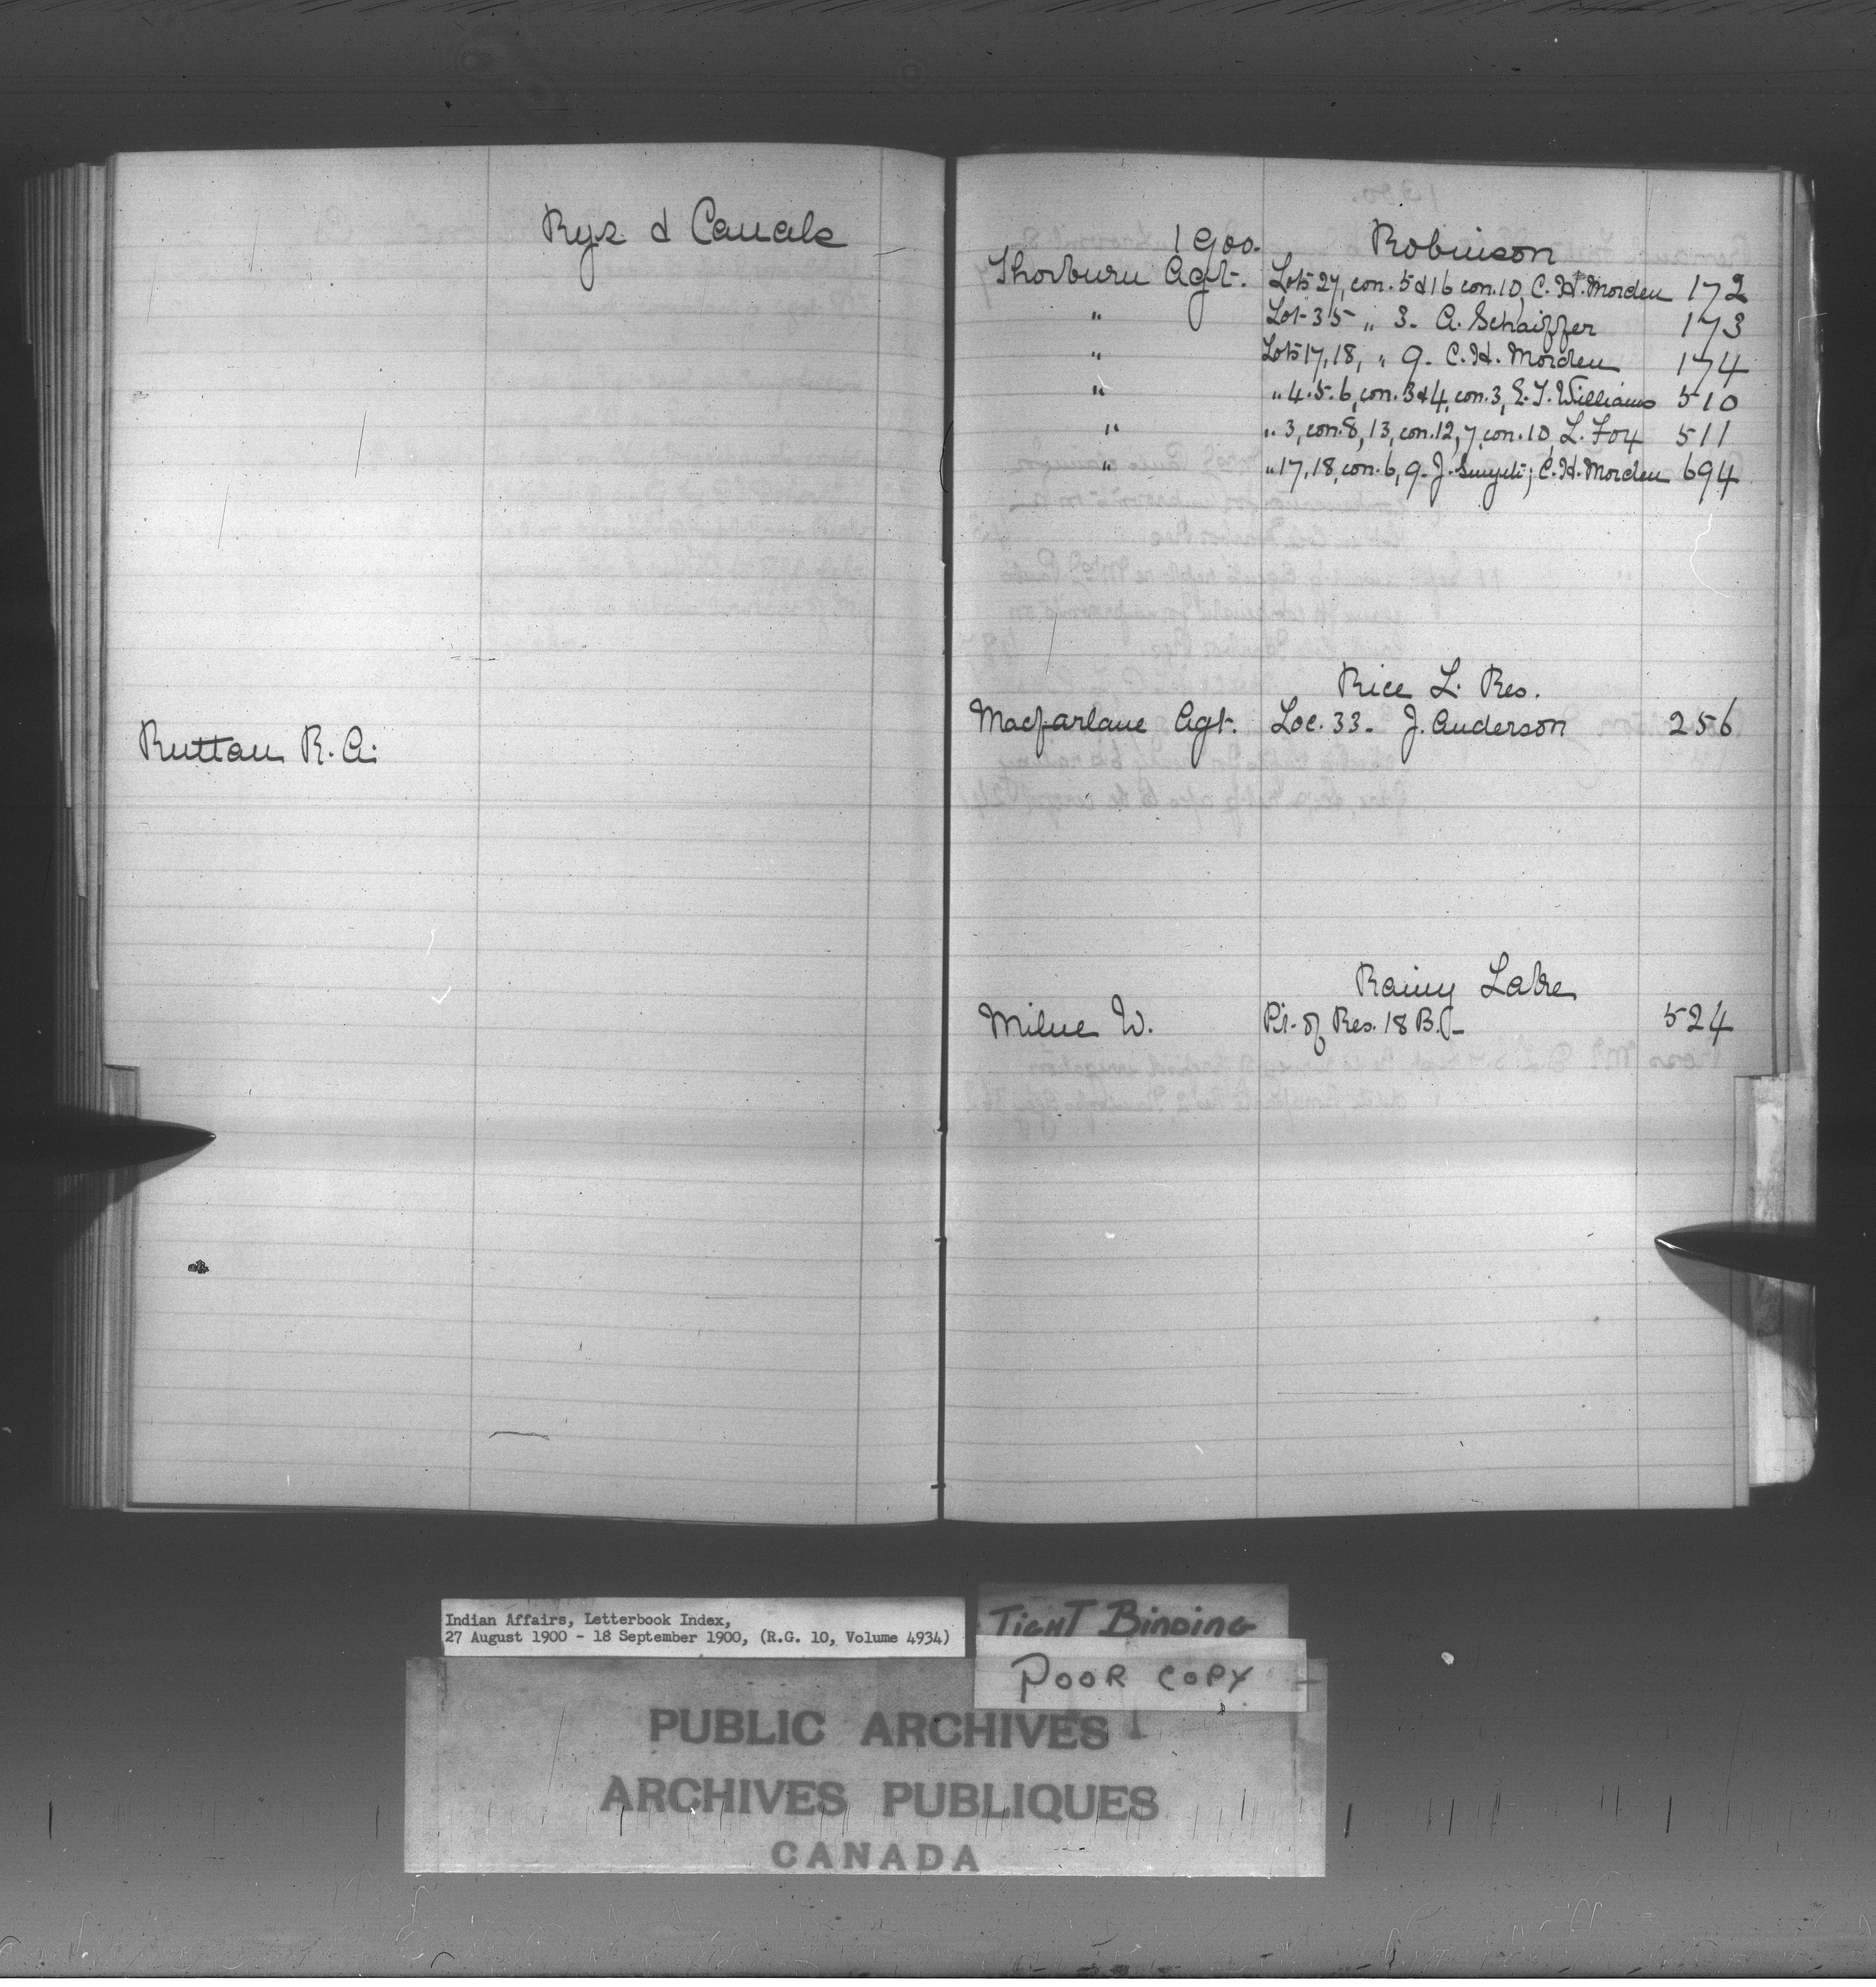 Rys. & Canals
Ruttan R. A.
1900. Robinson
Thorburn Agt. Lots 27, con. 5 & 16 con. 10, C. H. Morden 172
" Lot 35 " 3. A. Schaiffer 173
" Lots 17, 18, " 9. C. H. Morden 174
" " 4. 5. 6, con. 3 & 4, con. 3, E. J. Williams 510
" " 3, con. 8, 13, con. 12, 7, con. 10, L. Fox 511
" " 17, 18, con. 6, 9. J. C. H. Morden 694
Rice L. Res.
Macfarlane Agt. Loc. 33. J. Anderson 256
Rainy Lake
Milne W. Pt. of Res. 18 B. 524
Indian Affairs, Letterbook Index,
27 August 1900 - 18 September 1900, (R.G. 10, Volume 4934)
TIGHT BINDING
POOR COPY
PUBLIC ARCHIVES
ARCHIVES PUBLIQUES
CANADA